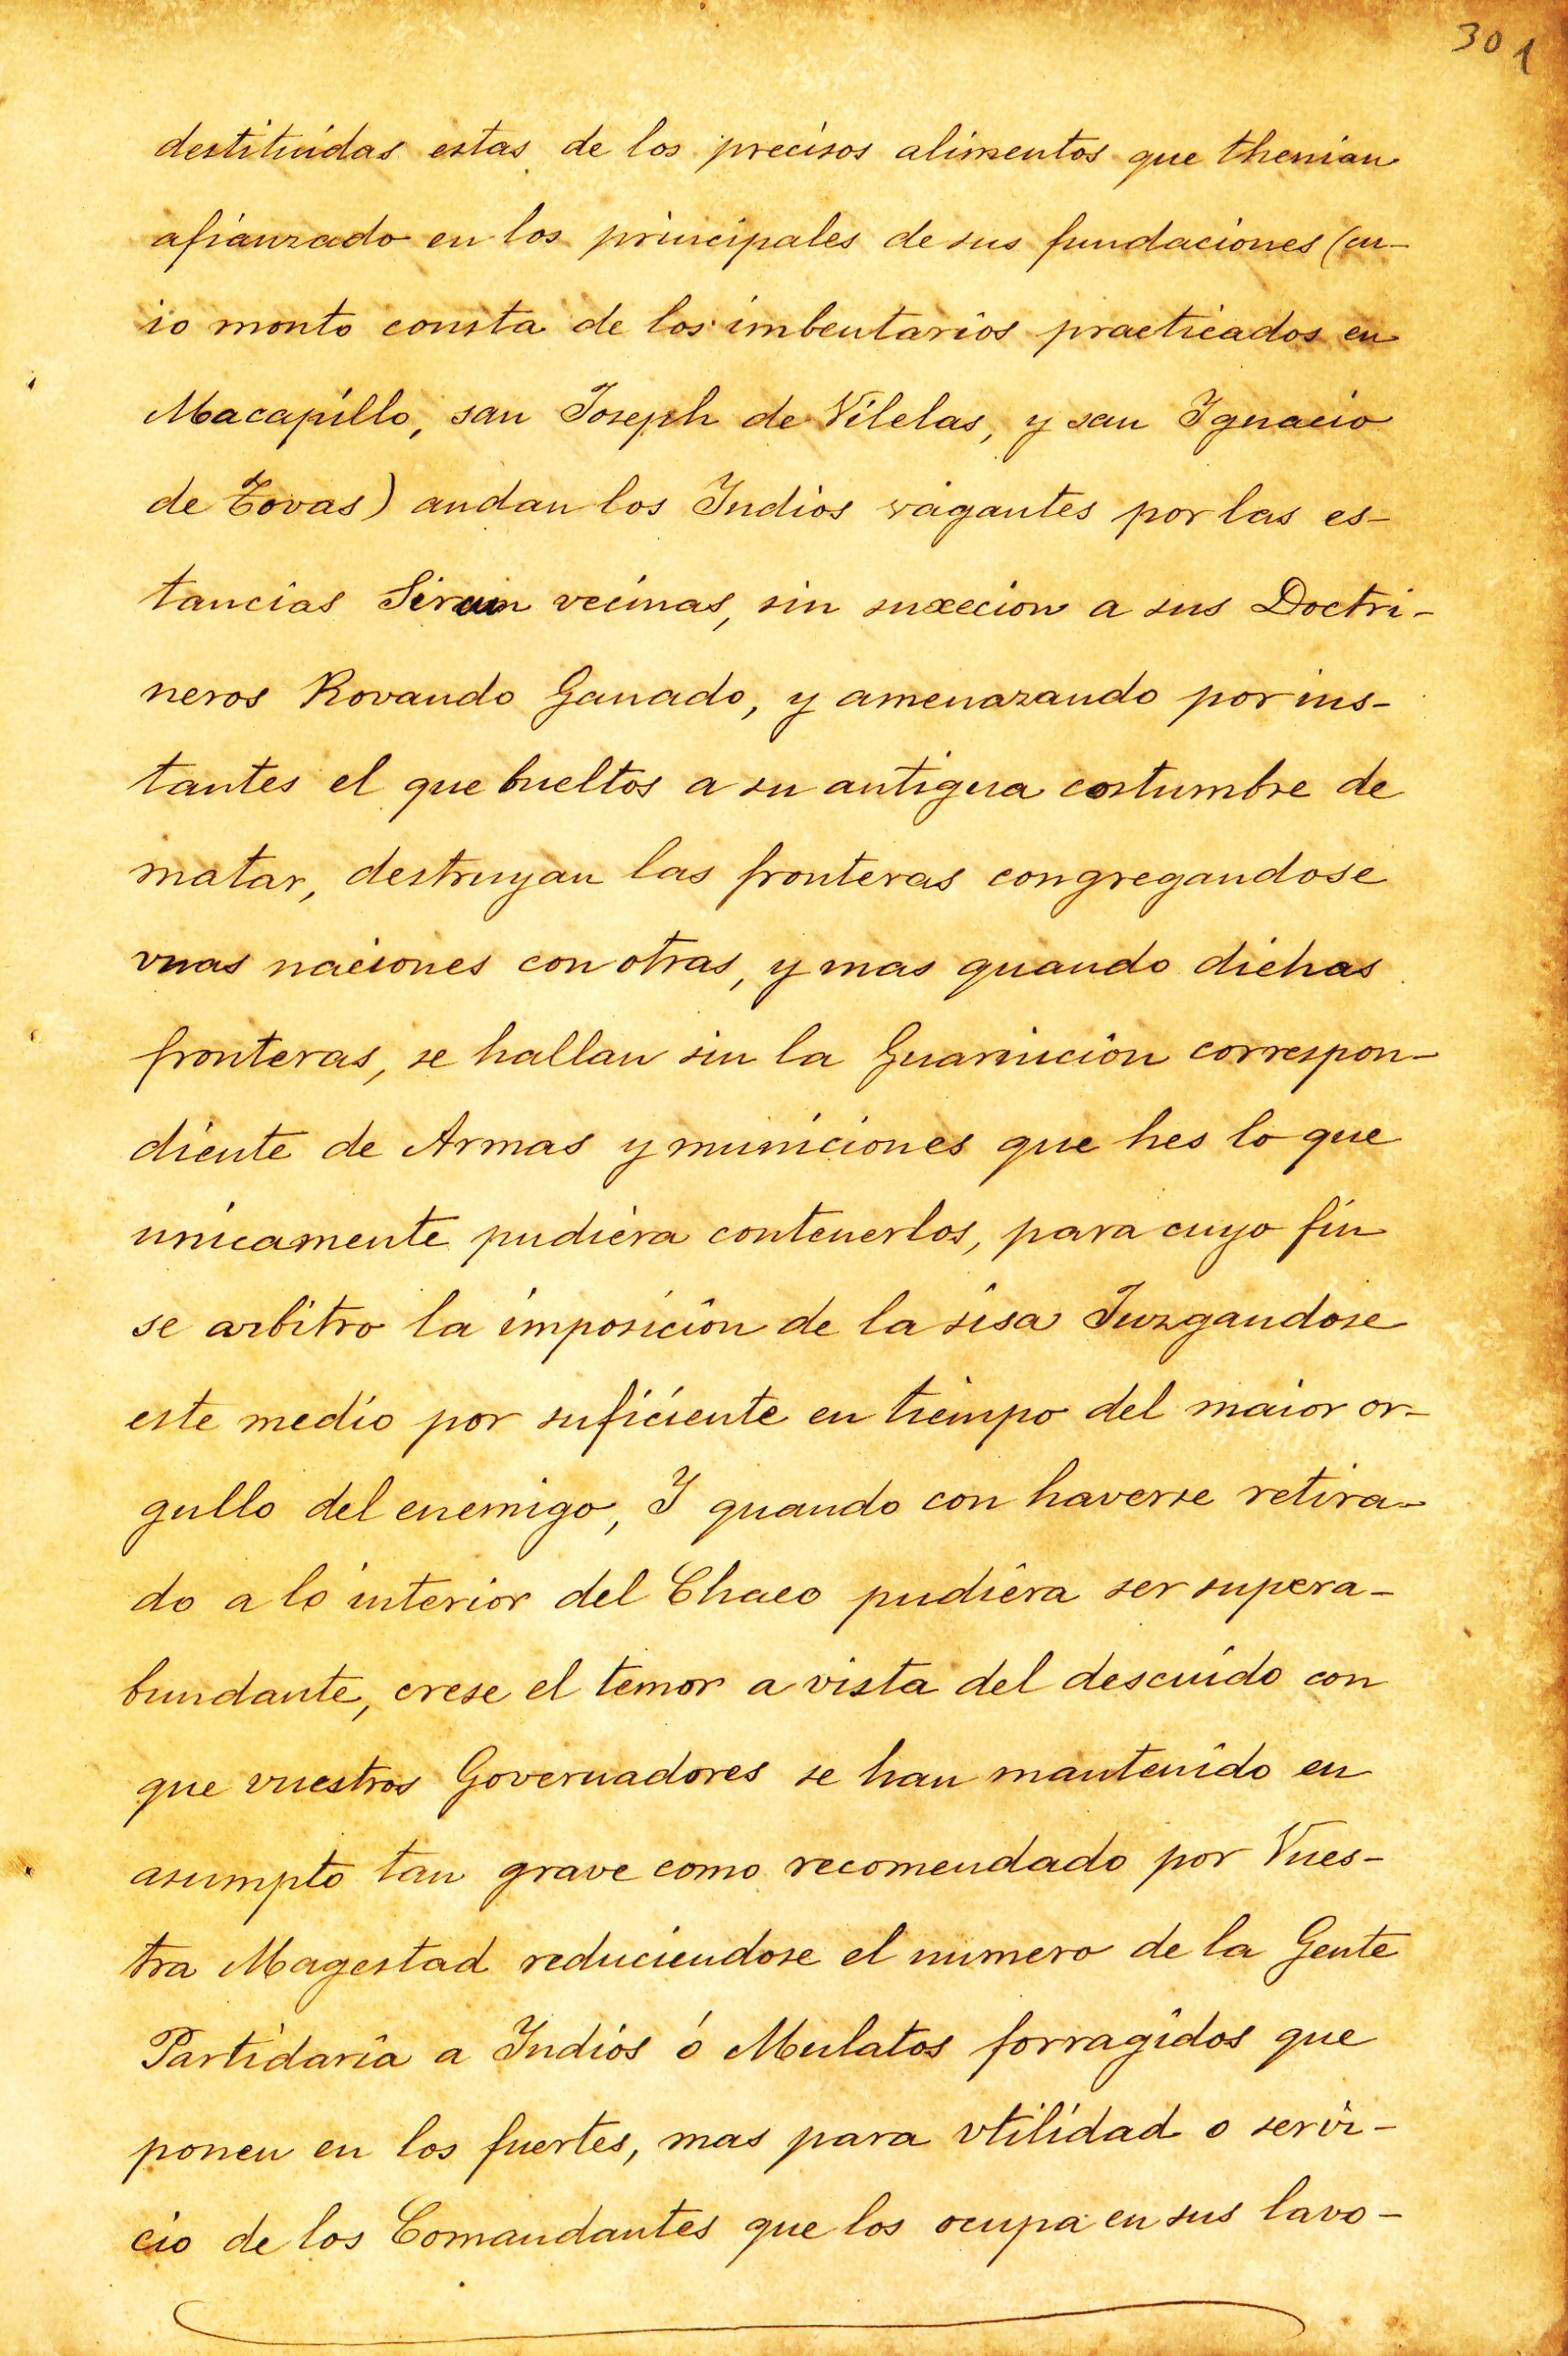 301
destituidas estas de los precisos alimentos que thenian
afianzado en los principales de sus fundaciones (cu-
io monto consta de los imbentarios practicados en
Macapillo, san Joseph de Vilelas, y san Ignacio
de Tovas) andan los Indios vagantes por las es-
tancias vecinas, sin suxecion a sus Doctri-
neros Rovando Ganado, y amenazando por ins-
tantes el que bueltos a su antigua costumbre de
matar, destruyan las fronteras congregandose
vnas naciones con otras, y mas quando dichas
fronteras, se hallan sin la Guarnicion correspon-
diente de Armas y municiones que hes lo que
unicamente pudiera contenerlos, para cuyo fin
se arbitro la imposicion de la sisa Juzgandose
este medio por suficiente en tiempo del maior or-
gullo del enemigo, I quando con haverse retira-
do a lo interior del Chaco pudiera ser supera-
bundante, crese el temor a vista del descuido con
que vuestros Governadores se han mantenido en
asumpto tan grave como recomendado por Vues-
tra Magestad reduciendose el numero de la Gente
Partidaria a Indios ó Mulatos forragidos que
ponen en los fuertes, mas para vtilidad o servi-
cio de los Comandantes que los ocupa en sus lavo-